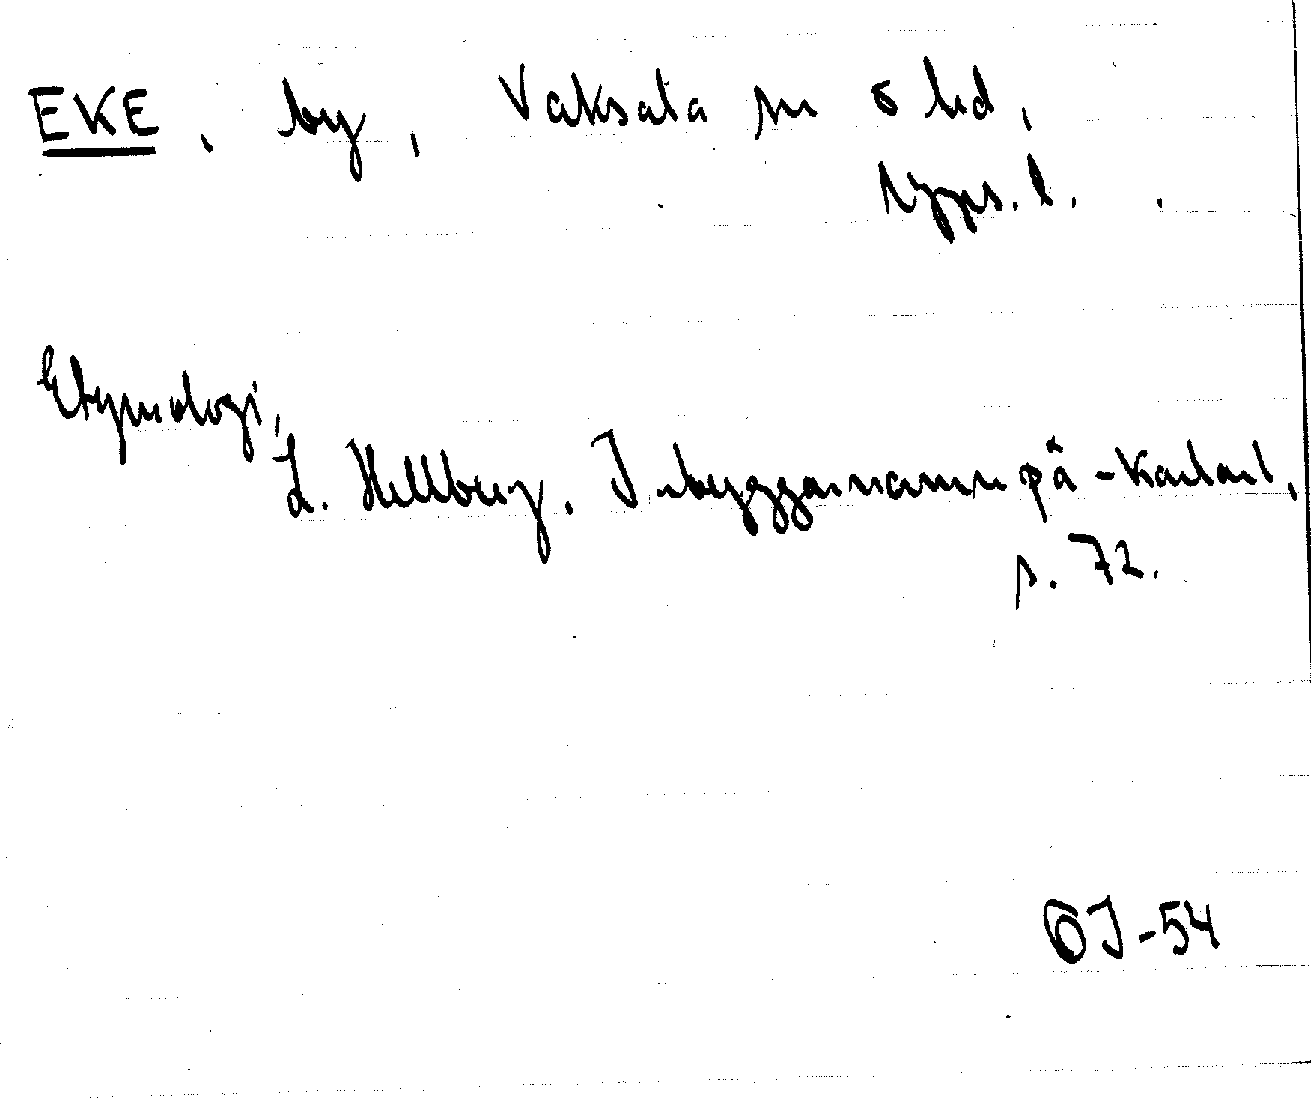 EKE, by, Vaksala sn ö hd,
Upps. l.
Etymologi,
L. Hellberg. Inbyggarnamn på -karlar,
s. 72.
ÖJ-54